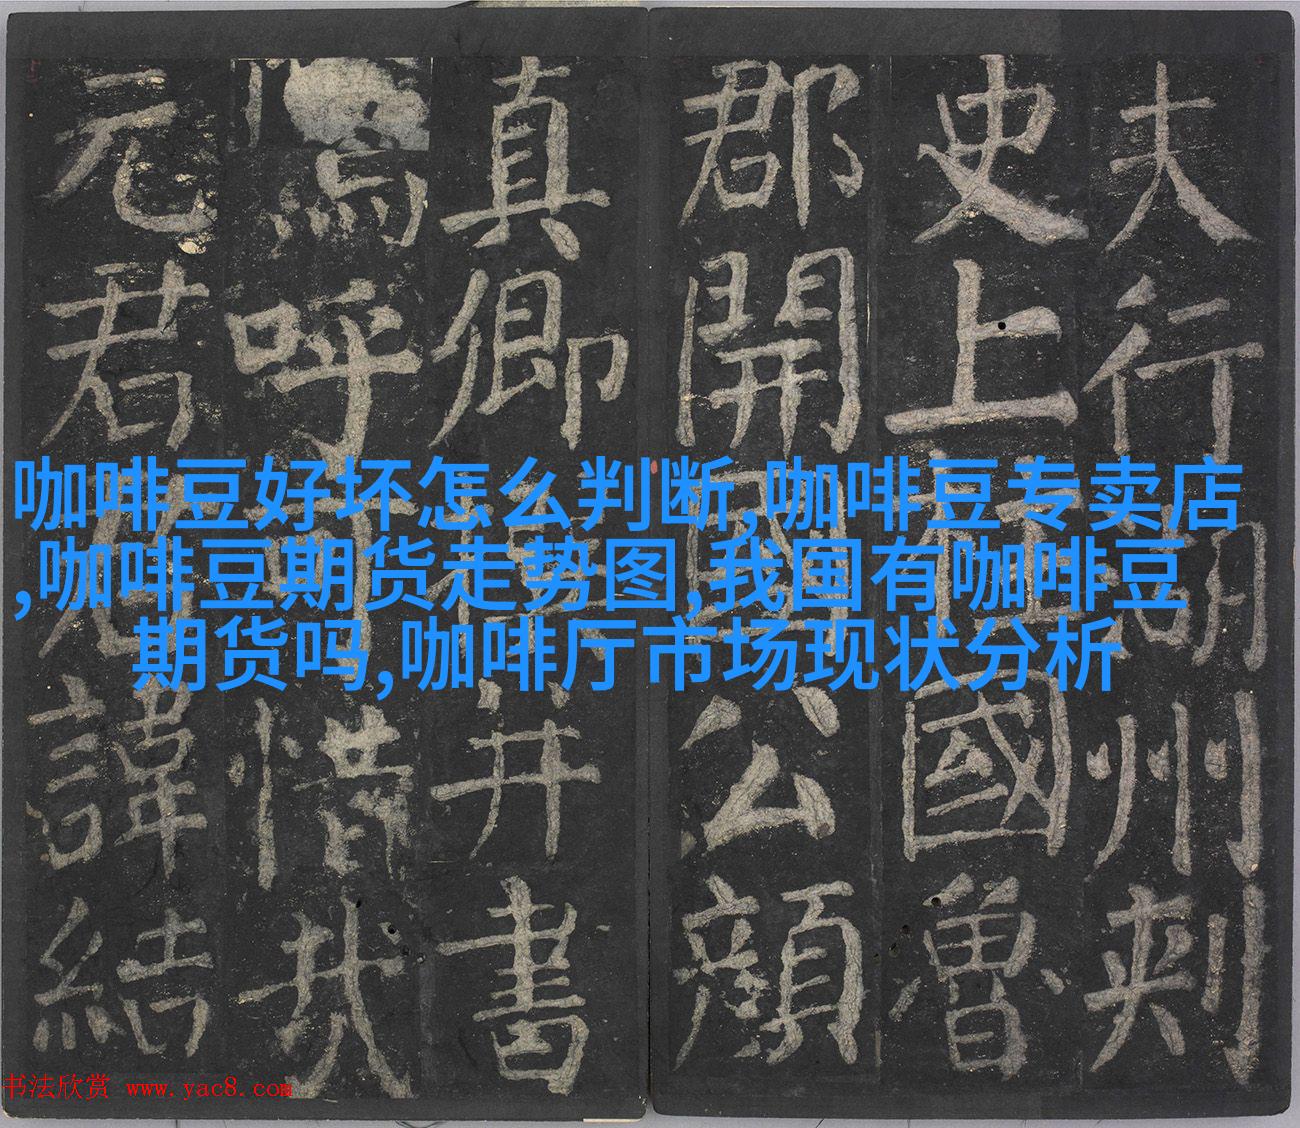 咖啡豆好坏怎么判断,咖啡豆专卖店
,咖啡豆期货走势图,我国有咖啡豆
期货吗,咖啡厅市场现状分析
夫行湖州刺
史上柱國魯
郡開國公顏
真卿撰并書
嗚呼可惜哉
元君君諱結
书法欣赏 www.yac8.com